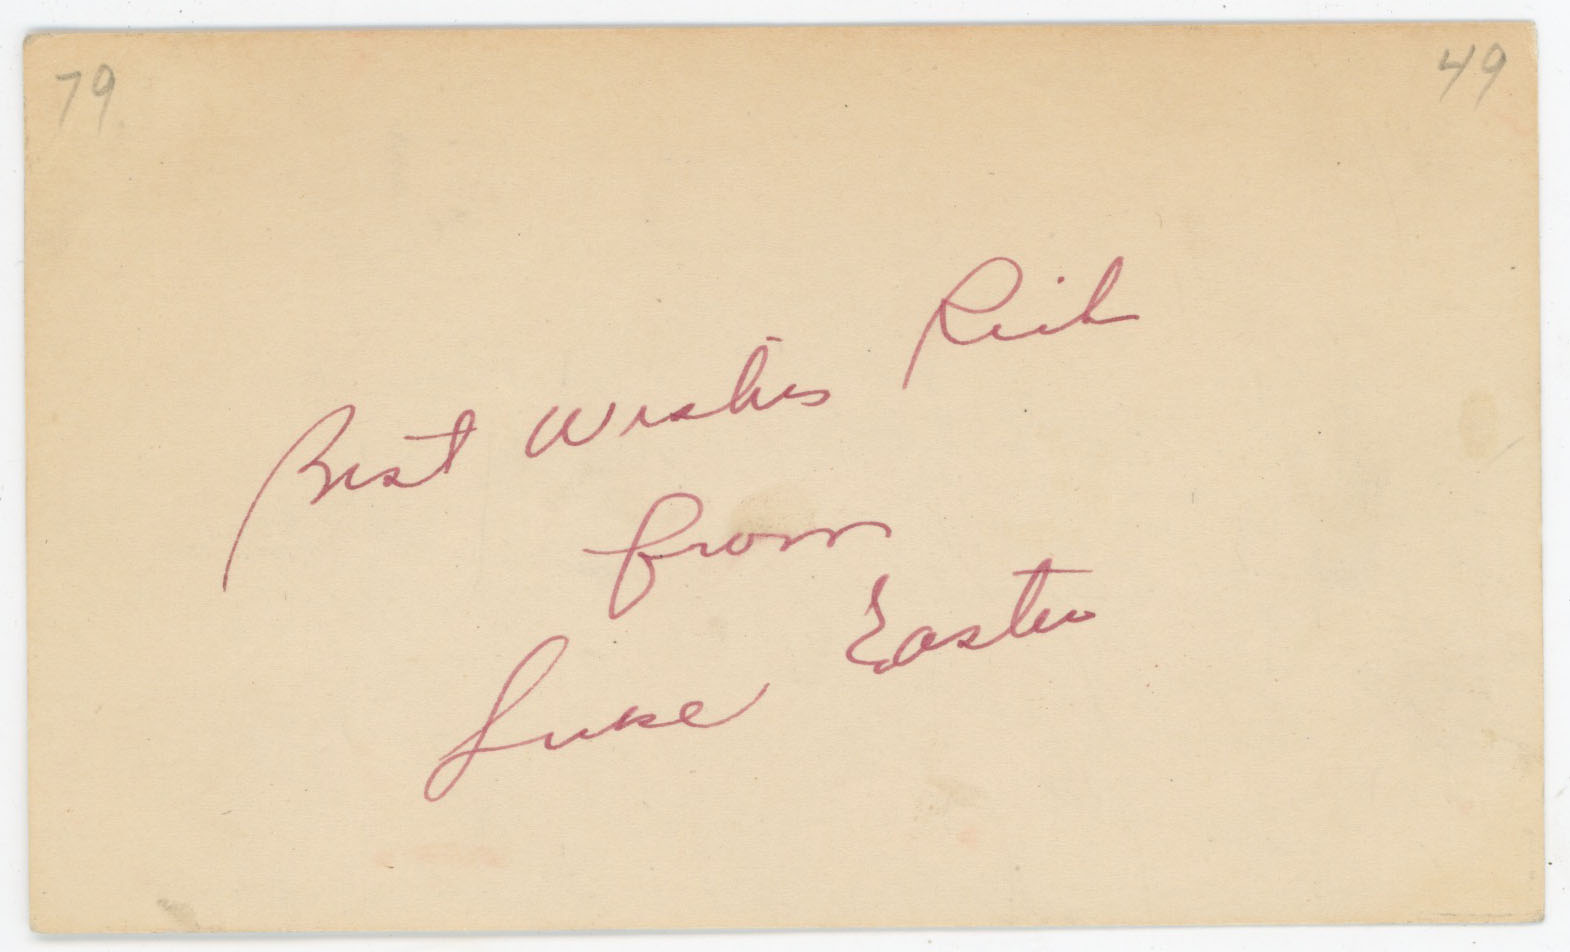 79
49
Best Wishes Rich
from
Luke Easter